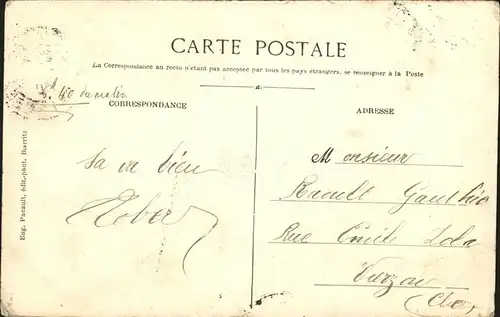 CARTE POSTALE
La Correspondance au recto n'étant pas acceptée par tous les pays étrangers, se renseigner à la Poste
40 du matin
CORRESPONDANCE
Sa va bien
Rober
ADRESSE
Monsieur
Raoult Gauthié
Rue Emile Zola
Vierzon
(Cher)
Eug. Pacault, édit.-phot. Biarritz